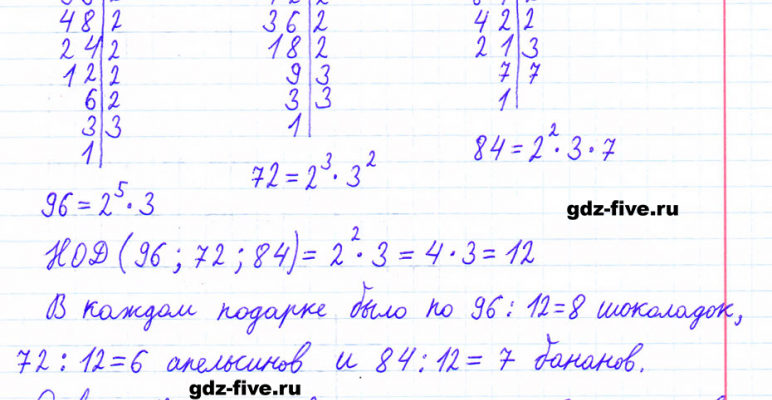 48|2 36|2 42|2
24|2 18|2 21|3
12|2 9|3 7|7
6|2 3|3 1|
3|3 1|
1|
84 = 2²·3·7
72 = 2³·3²
96 = 2⁵·3
gdz-five.ru
НОД (96; 72; 84) = 2²·3 = 4·3 = 12
В каждом подарке было по 96 : 12 = 8 шоколадок,
72 : 12 = 6 апельсинов и 84 : 12 = 7 бананов.
gdz-five.ru